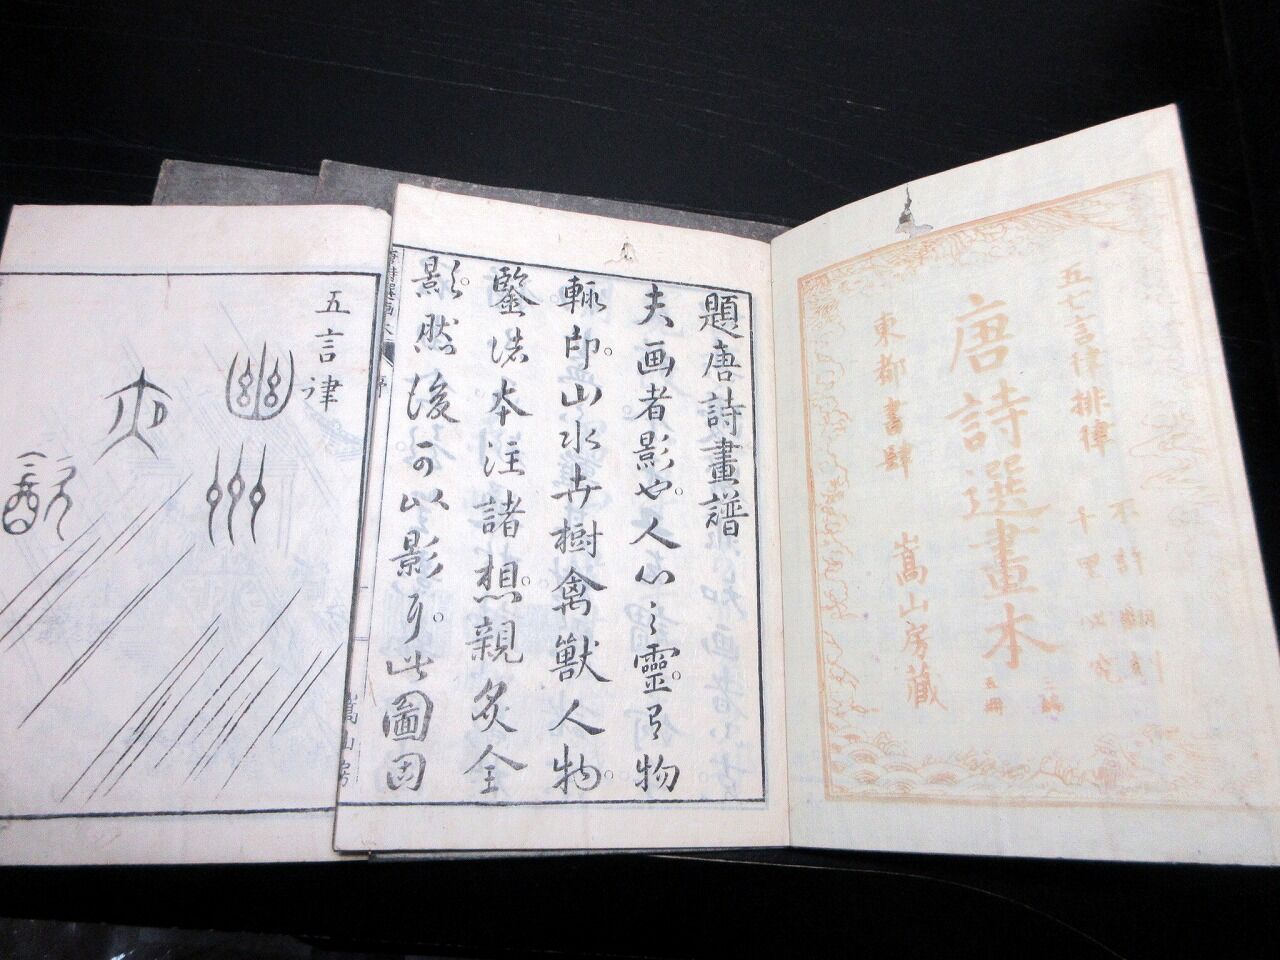 五七言律排律
不許翻刻
千里必究
唐詩選畫本
三編
五冊
東都書肆
嵩山房藏
題唐詩畫譜
夫画者影也。人心之靈。与物
輒印。山水卉樹禽獸人物。
鑒諸本注諸想。親炙全
影。然後可以影可。此圖因
唐詩選画本
序
嵩山房
五言律
幽州
夜
歌